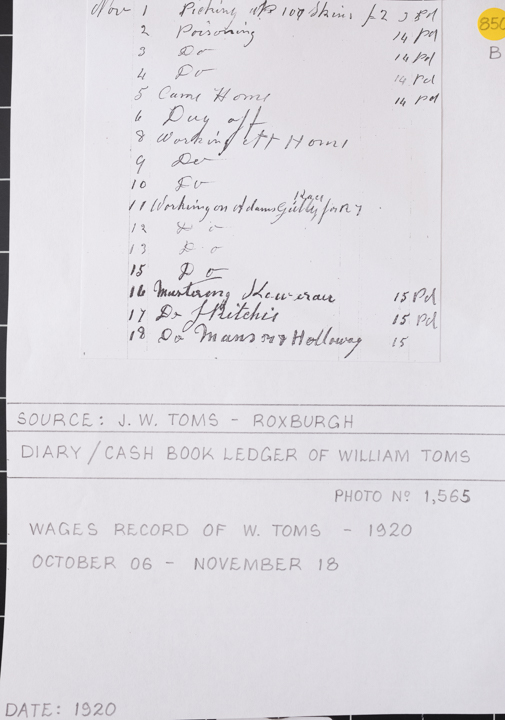 850
B
Nov 1 Picking up 109 Skins £2 3 8 Pd
2 Poisoning 14 Pd
3 Do 14 Pd
4 Do 14 Pd
5 Came Home 14 Pd
6 Day off
8 Working att Home
9 Do
10 Do
11 Working on Adams Gully for R
12 Do
13 Do
15 Do
16 Mustering 15 Pd
17 Do Ritchis 15 Pd
18 Do Holloway 15
SOURCE: J. W. TOMS - ROXBURGH
DIARY / CASH BOOK LEDGER OF WILLIAM TOMS
PHOTO Nº 1,565
WAGES RECORD OF W. TOMS - 1920
OCTOBER 06 - NOVEMBER 18
DATE: 1920